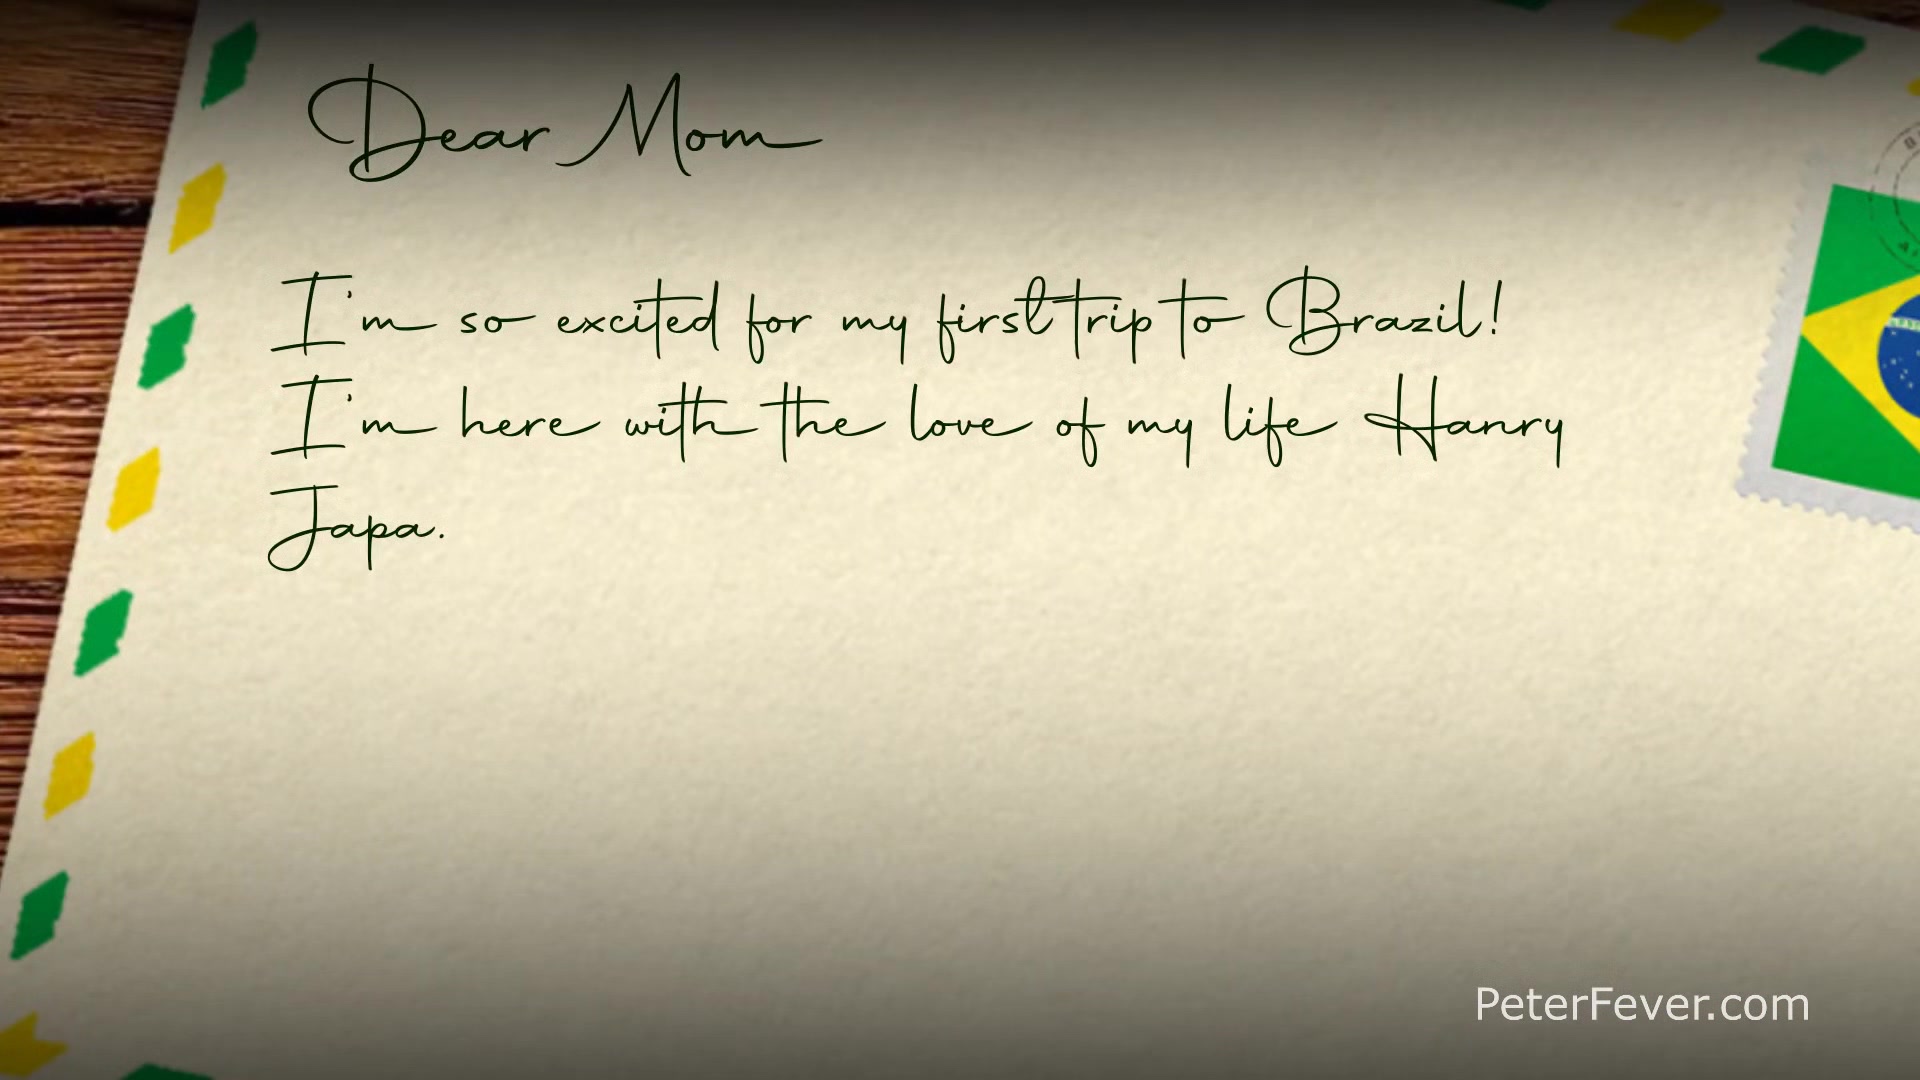 Dear Mom
I'm so excited for my first trip to Brazil!
I'm here with the love of my life Hanry
Japa.
PeterFever.com